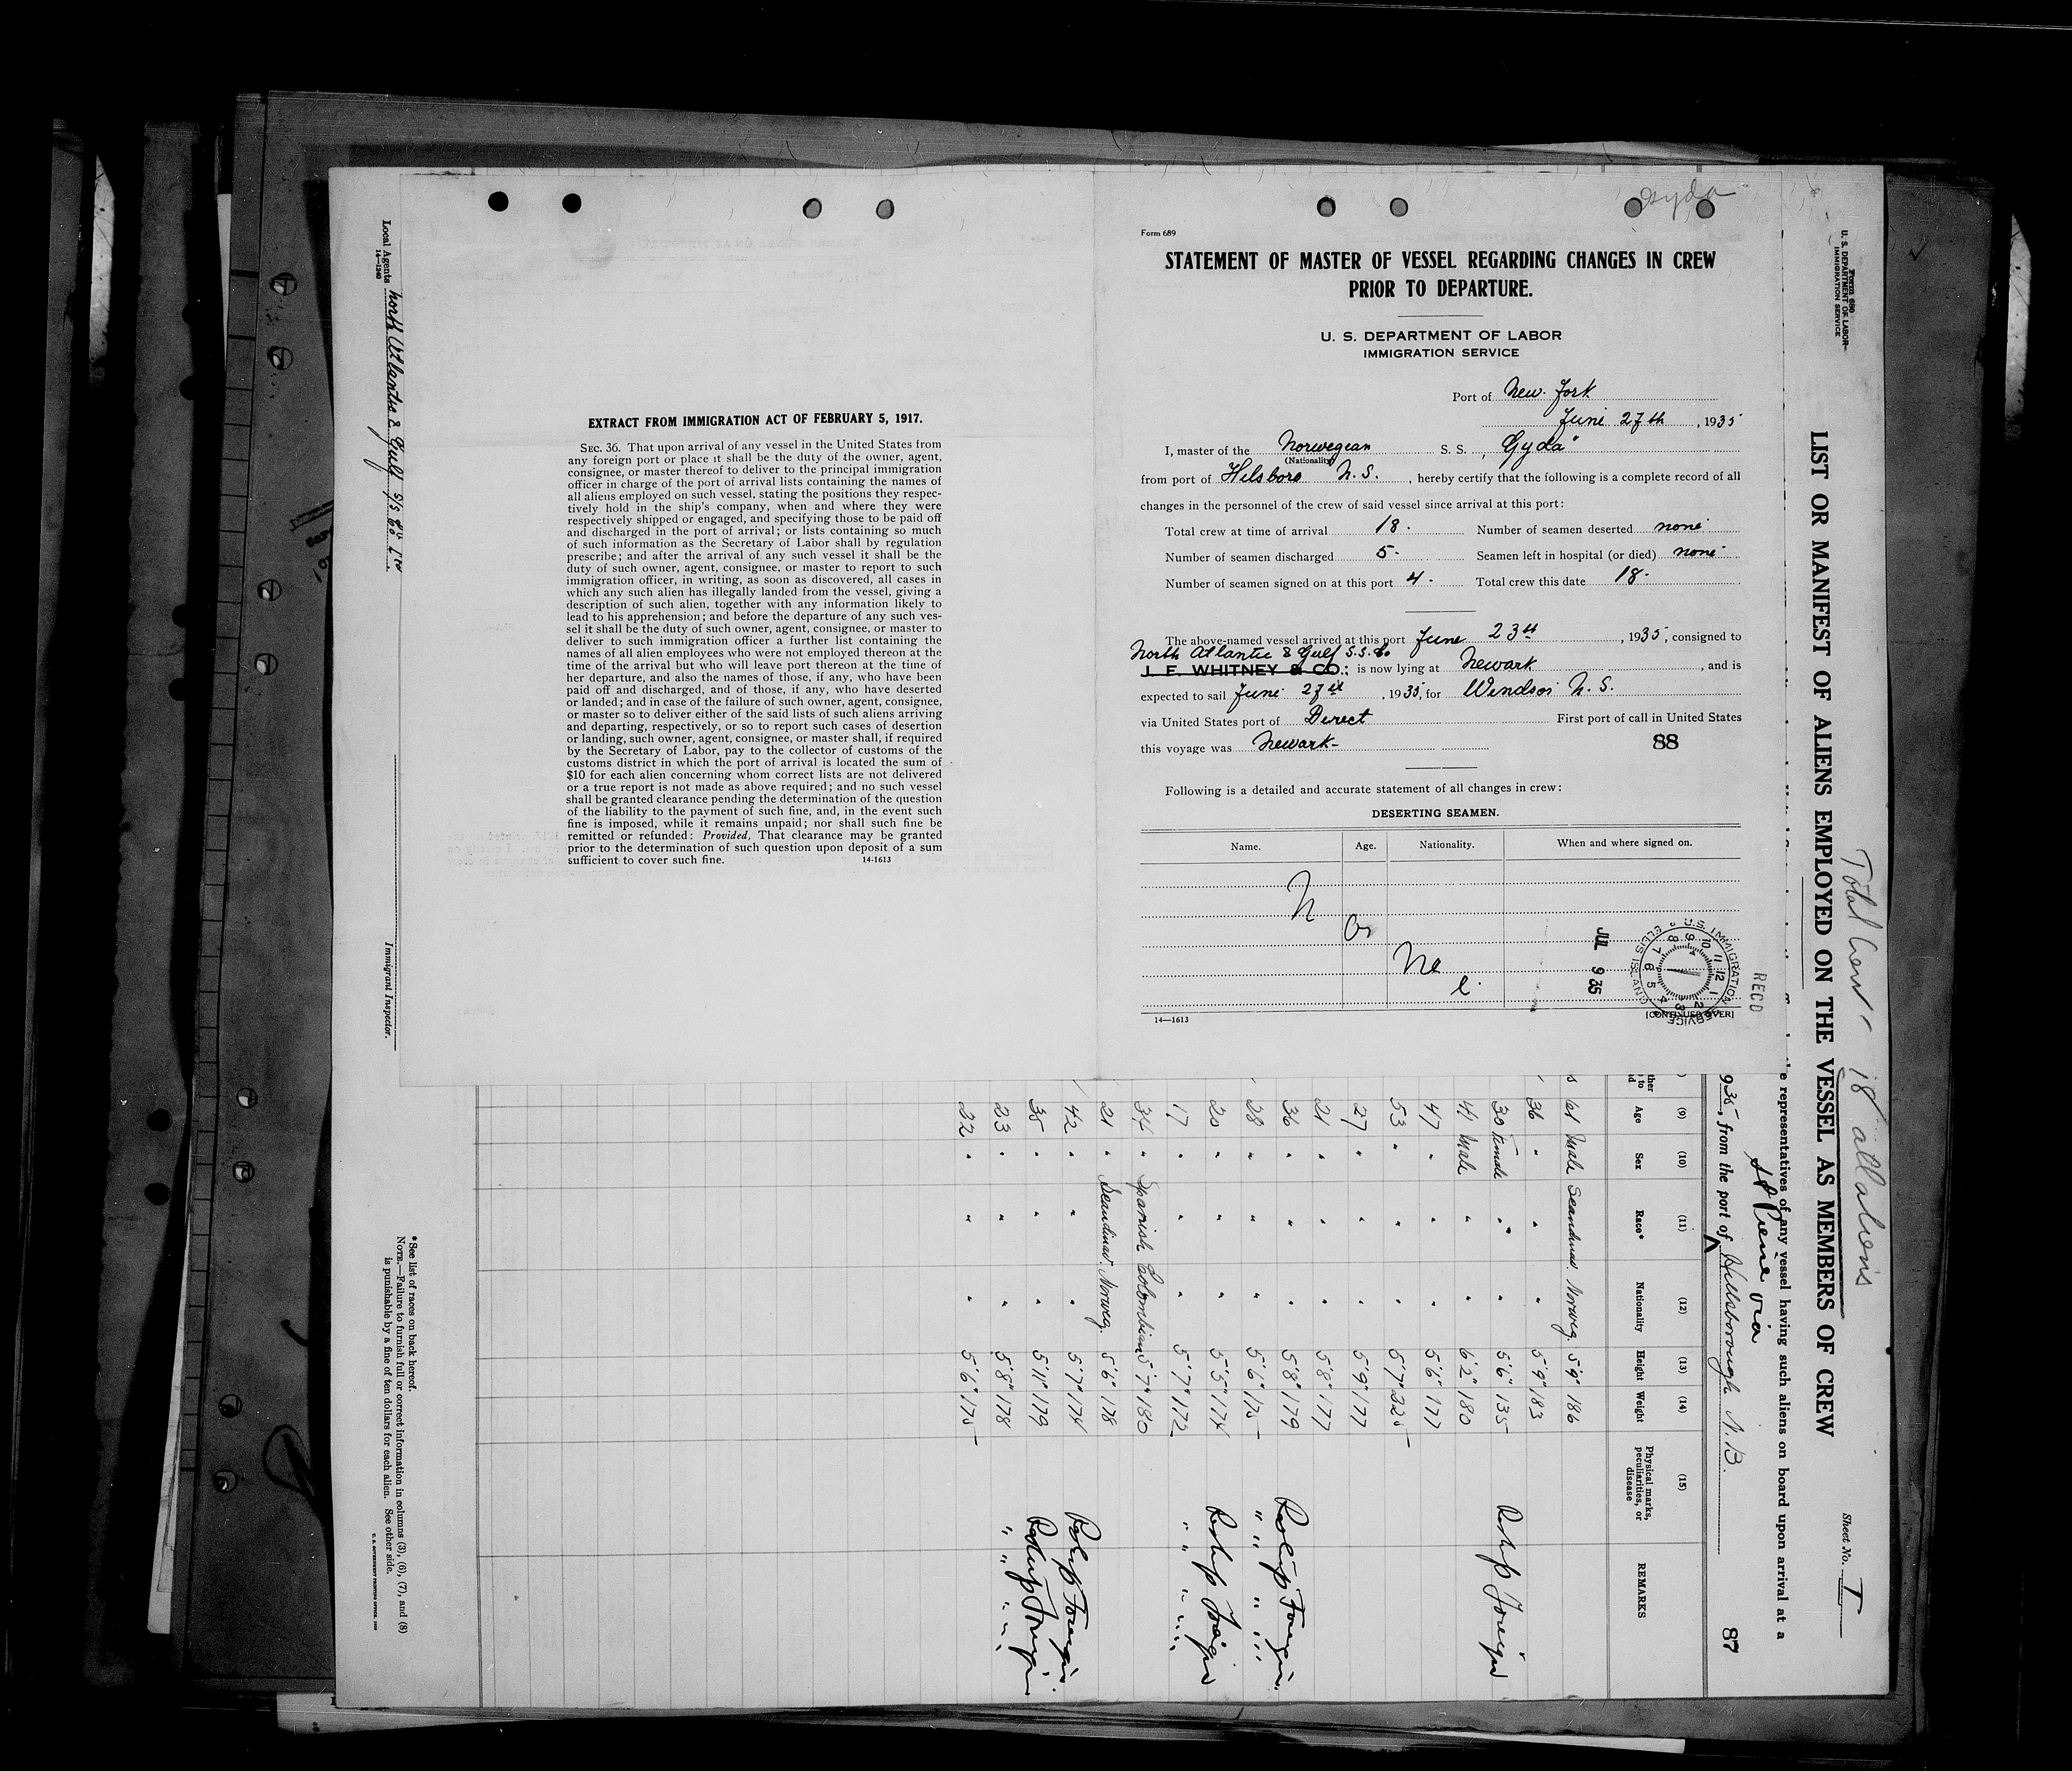 Gyda
Form 689
STATEMENT OF MASTER OF VESSEL REGARDING CHANGES IN CREW
PRIOR TO DEPARTURE.
U. S. DEPARTMENT OF LABOR
IMMIGRATION SERVICE
Port of New York
June 27th, 1935
I, master of the Norwegian S. S. "Gyda"
(Nationality)
from port of Helsboro N.S., hereby certify that the following is a complete record of all
changes in the personnel of the crew of said vessel since arrival at this port:
Total crew at time of arrival 18. Number of seamen deserted none
Number of seamen discharged 5- Seamen left in hospital (or died) none
Number of seamen signed on at this port 4. Total crew this date 18.
The above-named vessel arrived at this port June 23th, 1935, consigned to
North Atlantic & Gulf S.S. Co
J. E. WHITNEY & CO.; is now lying at Newark, and is
expected to sail June 27th, 1935, for Windsor N.S.
via United States port of Derect First port of call in United States
this voyage was Newark- 88
Following is a detailed and accurate statement of all changes in crew:
DESERTING SEAMEN.
Name. Age. Nationality. When and where signed on.
JUL 9 35
U.S. IMMIGRATION SERVICE ELLIS ISLAND
RECD
14—1613 [CONTINUED OVER]
EXTRACT FROM IMMIGRATION ACT OF FEBRUARY 5, 1917.
SEC. 36. That upon arrival of any vessel in the United States from
any foreign port or place it shall be the duty of the owner, agent,
consignee, or master thereof to deliver to the principal immigration
officer in charge of the port of arrival lists containing the names of
all aliens employed on such vessel, stating the positions they respec-
tively hold in the ship's company, when and where they were
respectively shipped or engaged, and specifying those to be paid off
and discharged in the port of arrival; or lists containing so much
of such information as the Secretary of Labor shall by regulation
prescribe; and after the arrival of any such vessel it shall be the
duty of such owner, agent, consignee, or master to report to such
immigration officer, in writing, as soon as discovered, all cases in
which any such alien has illegally landed from the vessel, giving a
description of such alien, together with any information likely to
lead to his apprehension; and before the departure of any such ves-
sel it shall be the duty of such owner, agent, consignee, or master to
deliver to such immigration officer a further list containing the
names of all alien employees who were not employed thereon at the
time of the arrival but who will leave port thereon at the time of
her departure, and also the names of those, if any, who have been
paid off and discharged, and of those, if any, who have deserted
or landed; and in case of the failure of such owner, agent, consignee,
or master so to deliver either of the said lists of such aliens arriving
and departing, respectively, or so to report such cases of desertion
or landing, such owner, agent, consignee, or master shall, if required
by the Secretary of Labor, pay to the collector of customs of the
customs district in which the port of arrival is located the sum of
$10 for each alien concerning whom correct lists are not delivered
or a true report is not made as above required; and no such vessel
shall be granted clearance pending the determination of the question
of the liability to the payment of such fine, and, in the event such
fine is imposed, while it remains unpaid; nor shall such fine be
remitted or refunded: Provided, That clearance may be granted
prior to the determination of such question upon deposit of a sum
sufficient to cover such fine. 14-1613
Form 680
U. S. DEPARTMENT OF LABOR
IMMIGRATION SERVICE
Total Crew 18 all aliens
Sheet No. 1
LIST OR MANIFEST OF ALIENS EMPLOYED ON THE VESSEL AS MEMBERS OF CREW
representatives of any vessel having such aliens on board upon arrival at a
St Pierre via
935, from the port of Hillsborough N.B. 87
(9) (10) (11) (12) (13) (14) (15)
Age Sex Race* Nationality Height Weight Physical marks, peculiarities, or disease REMARKS
61 Male Scandinav. Norweg. 5'9" 186
36 " " " 5'9" 183
30 Female " " 5'6" 135
41 Male " " 6'2" 180
47 " " " 5'6" 177
53 " " " 5'7" 225
27 " " " 5'9" 177
21 " " " 5'8" 177
36 " " " 5'8" 179
28 " " " 5'6" 175
20 " " " 5'5" 174
17 " " " 5'7" 172
34 " Spanish Colombian 5'7" 180
21 " Scandinav. Norweg. 5'6" 178
42 " " " 5'7" 174
35 " " " 5'11" 179
23 " " " 5'8" 178
22 " " " 5'6" 175
*See list of races on back hereof.
NOTE.—Failure to furnish full or correct information in columns (3), (6), (7), and (8)
is punishable by a fine of ten dollars for each alien. See other side.
Local Agents North Atlantic & Gulf S/S Co
14—1240
Immigrant Inspector.